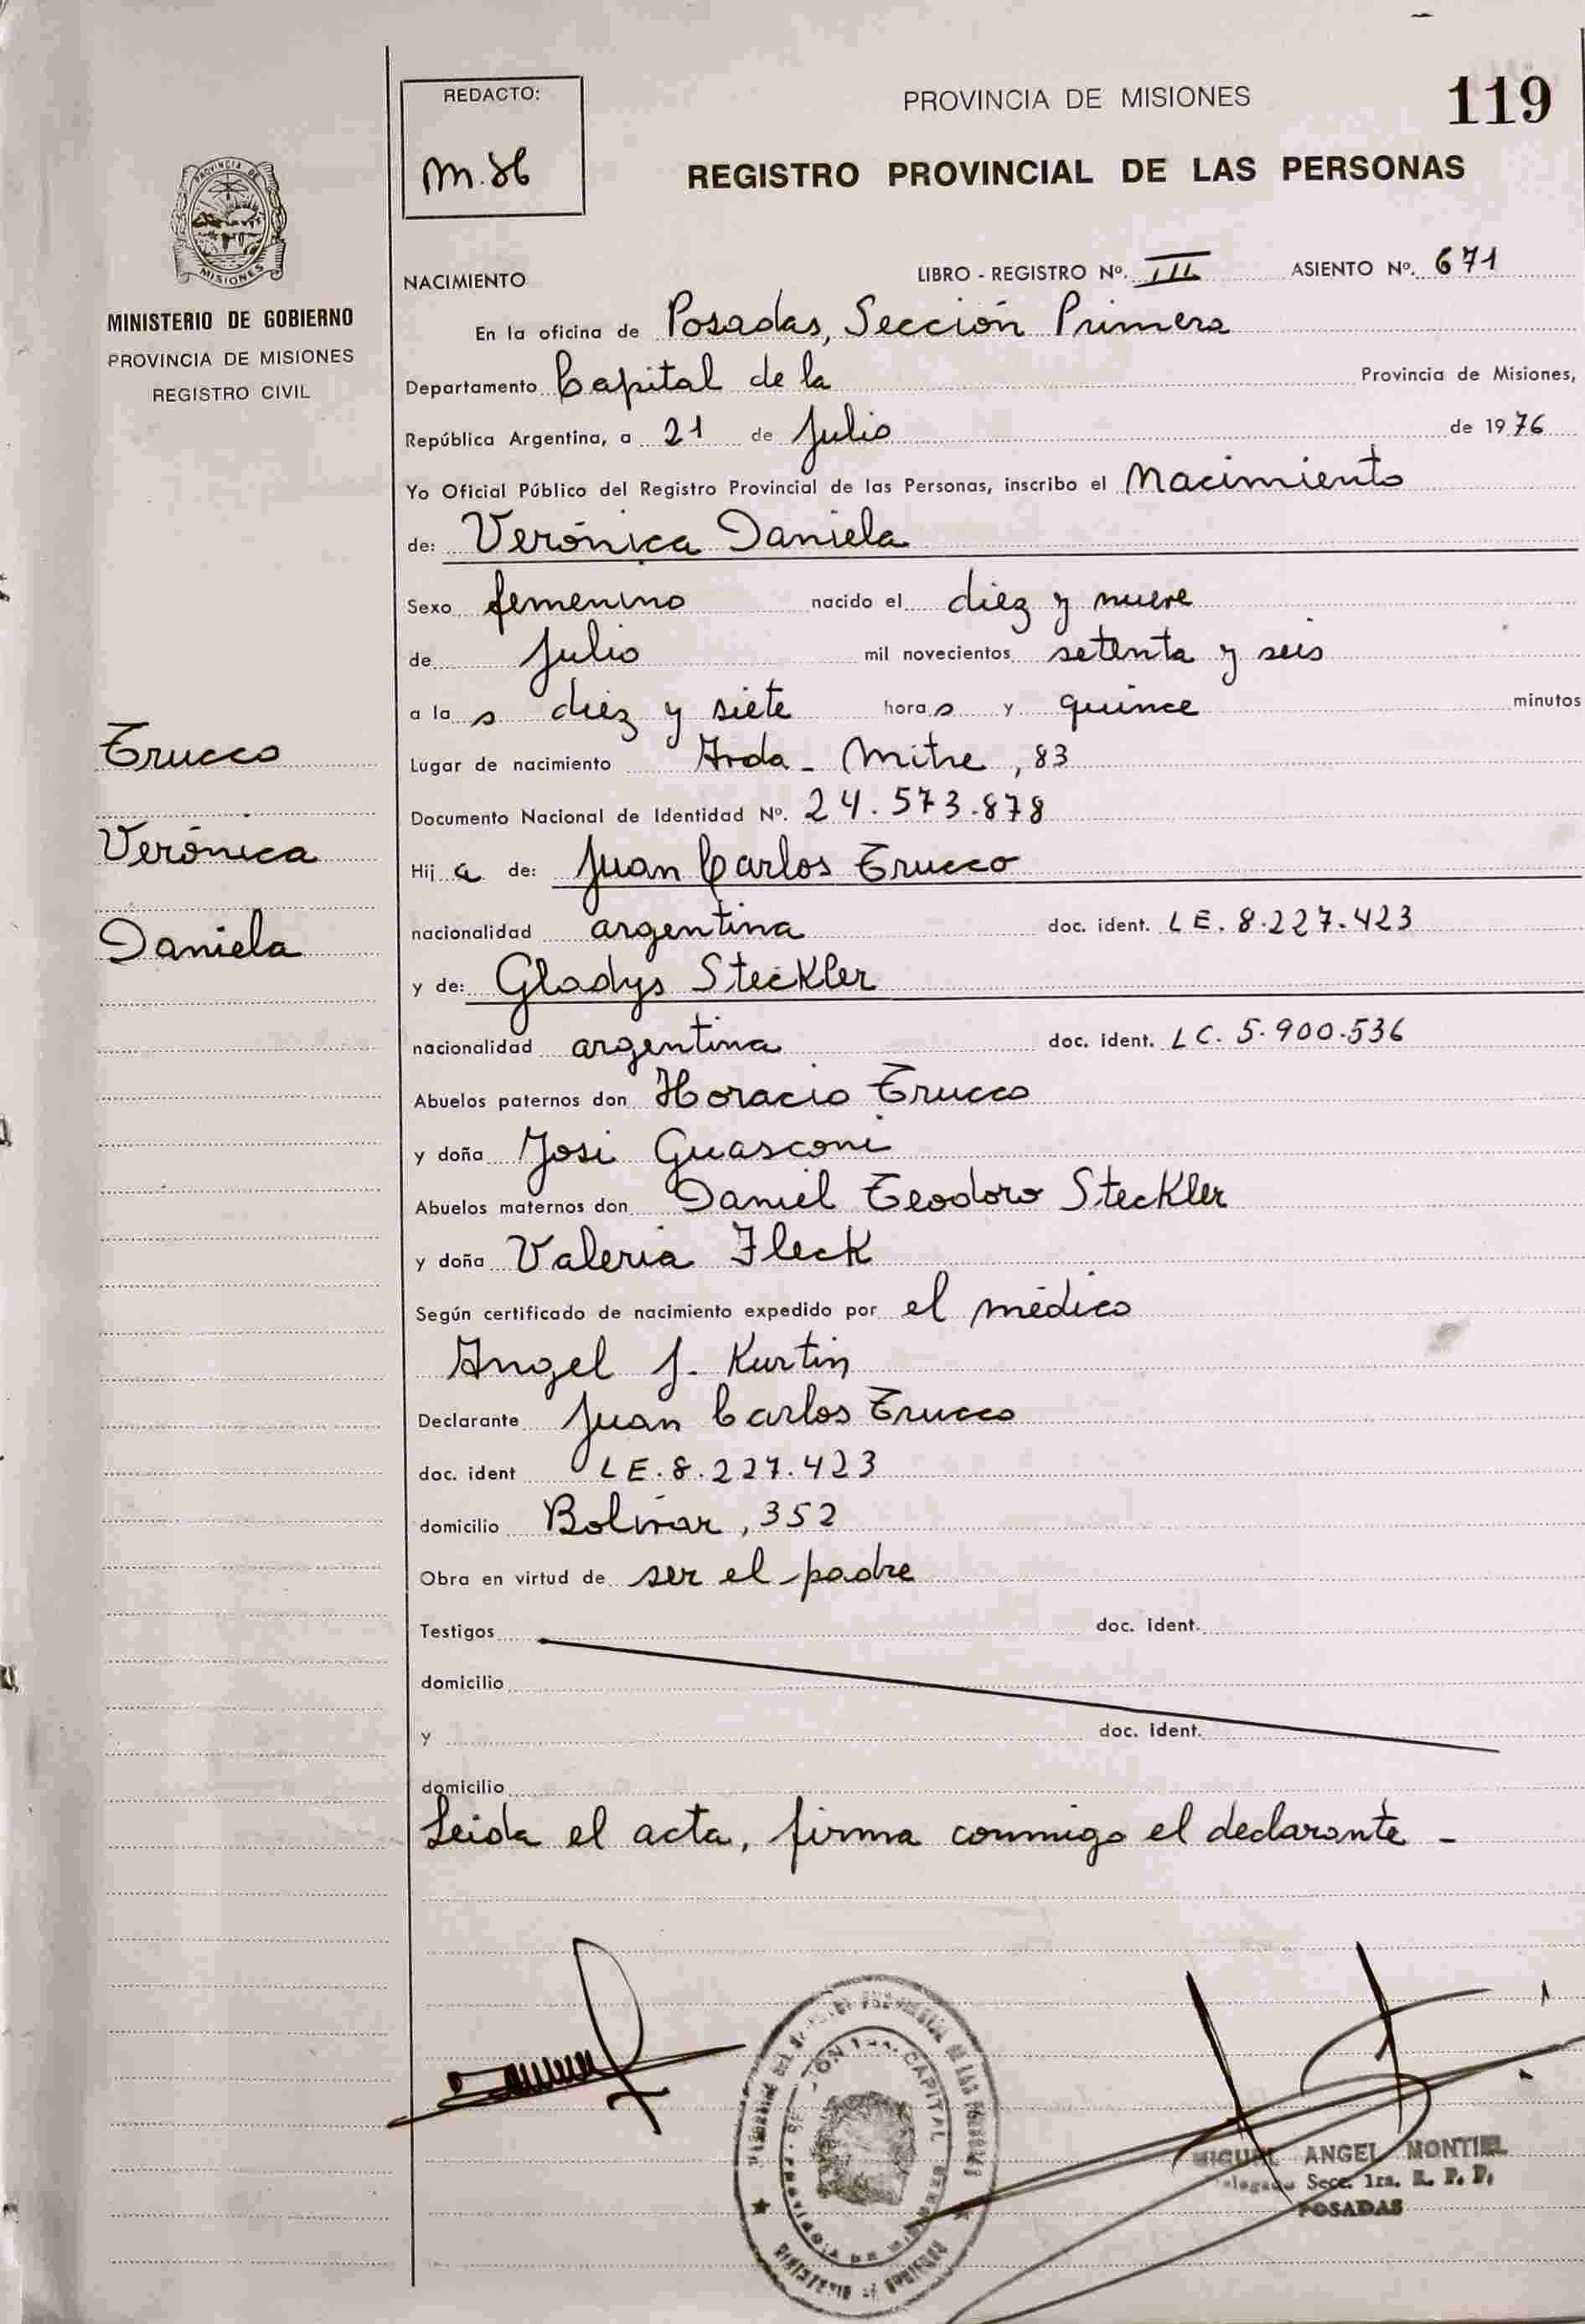 REDACTO:
PROVINCIA DE MISIONES
119
M. H
REGISTRO PROVINCIAL DE LAS PERSONAS
PROVINCIA DE
MISIONES
MINISTERIO DE GOBIERNO
PROVINCIA DE MISIONES
REGISTRO CIVIL
NACIMIENTO LIBRO - REGISTRO Nº. III ASIENTO Nº. 671
En la oficina de Posadas, Sección Primera
Departamento Capital de la Provincia de Misiones,
República Argentina, a 21 de Julio de 1976
Yo Oficial Público del Registro Provincial de las Personas, inscribo el Nacimiento
de: Verónica Daniela
Sexo femenino nacido el diez y nueve
de Julio mil novecientos setenta y seis
a la s diez y siete hora s y quince minutos
Lugar de nacimiento Avda - Mitre, 83
Documento Nacional de Identidad Nº. 24.573.878
Hij a de: Juan Carlos Trucco
nacionalidad argentina doc. ident. LE. 8.227.423
y de: Gladys Steckler
nacionalidad argentina doc. ident. LC. 5.900.536
Abuelos paternos don Horacio Trucco
y doña Josi Guasconi
Abuelos maternos don Daniel Teodoro Steckler
y doña Valeria Fleck
Según certificado de nacimiento expedido por el médico
Angel J. Kurtin
Declarante Juan Carlos Trucco
doc. ident LE. 8.227.423
domicilio Bolívar, 352
Obra en virtud de ser el padre
Testigos doc. ident.
domicilio
y doc. ident.
domicilio
Leida el acta, firma conmigo el declarante -
Trucco
Verónica
Daniela
CAPITAL
MIGUEL ANGEL MONTIEL
Delegado Secc. 1ra. R. P. P.
POSADAS